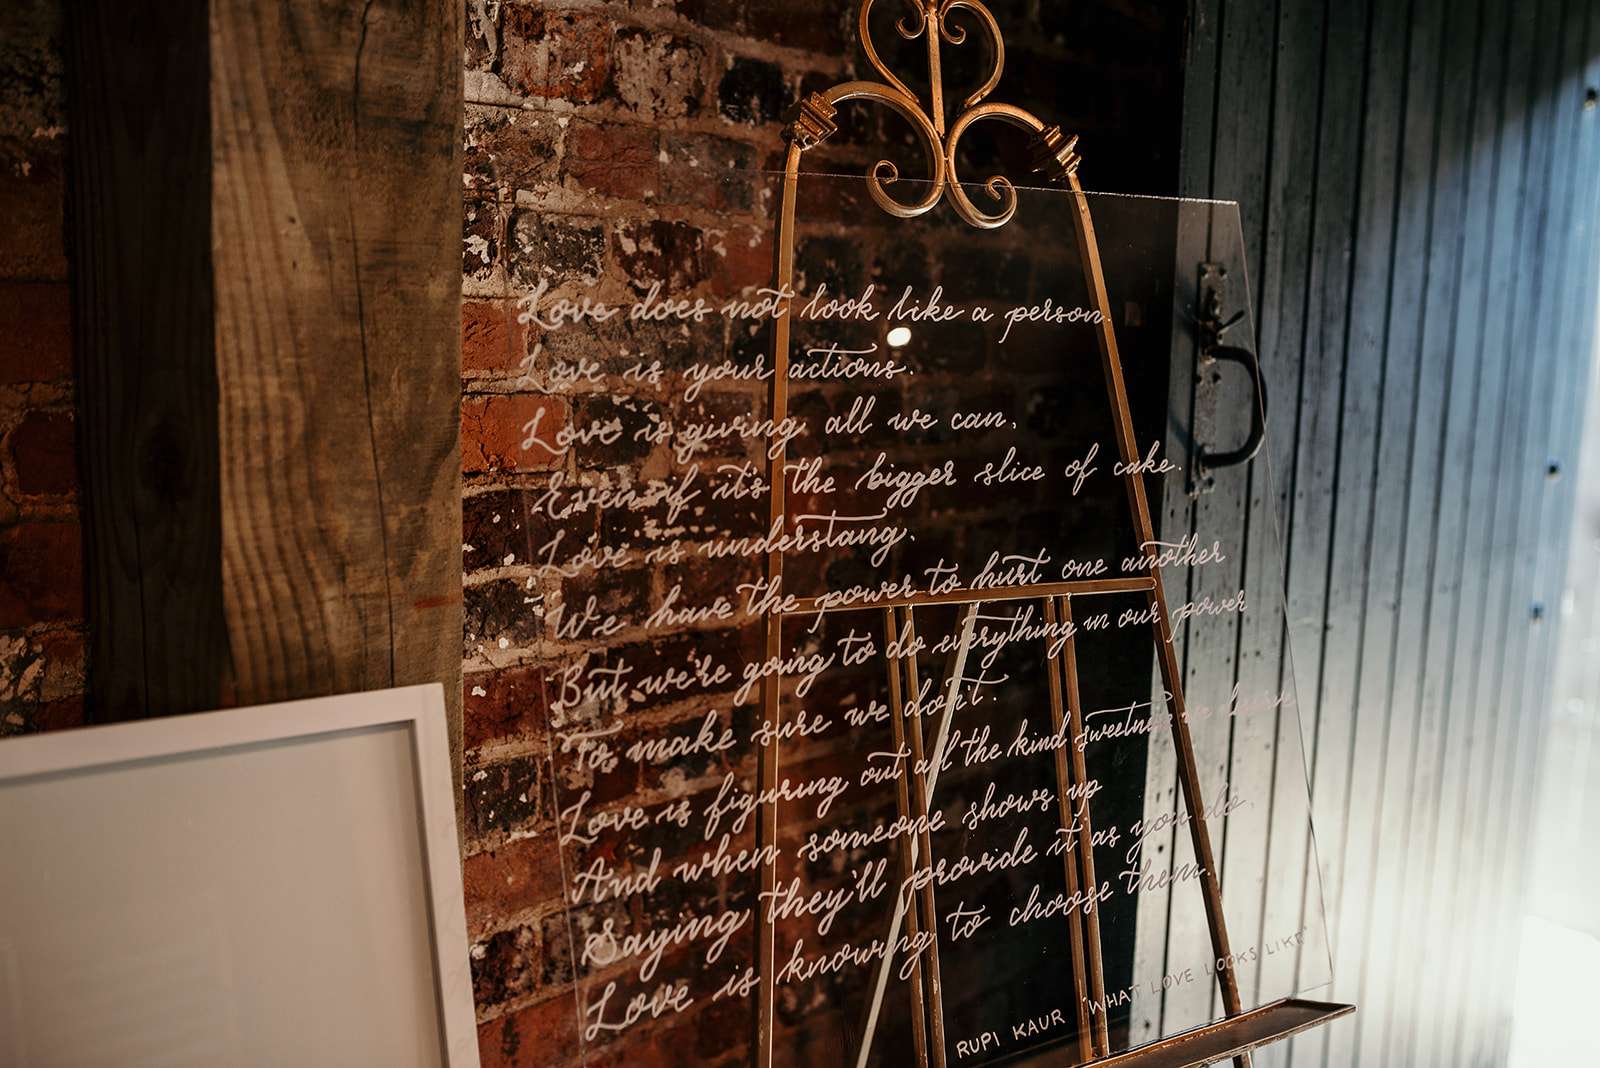 Love does not look like a person.
Love is your actions.
Love is giving all we can,
Even if it's the bigger slice of cake.
Love is understang.
We have the power to hurt one another
But we're going to do everything in our power
To make sure we don't.
Love is figuring out all the kind sweetness we deserve
And when someone shows up
Saying they'll provide it as you do,
Love is knowing to choose them.
RUPI KAUR 'WHAT LOVE LOOKS LIKE'